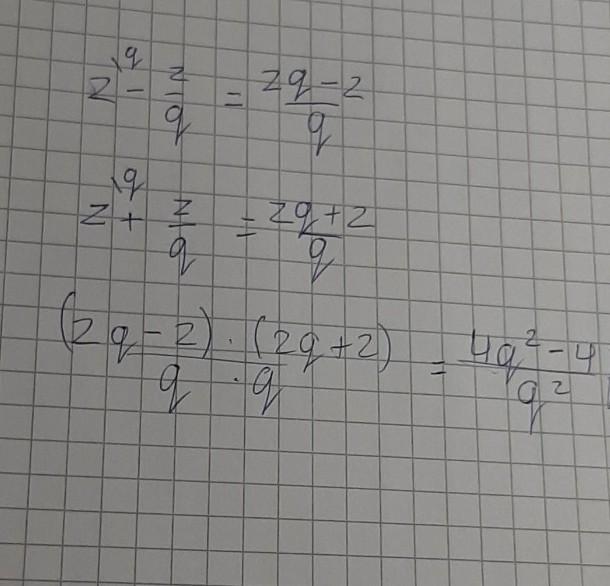 2^{\q} - \frac{2}{q} = \frac{2q-2}{q}
2^{\q} + \frac{2}{q} = \frac{2q+2}{q}
\frac{(2q-2) \cdot (2q+2)}{q \cdot q} = \frac{4q^2-4}{q^2}